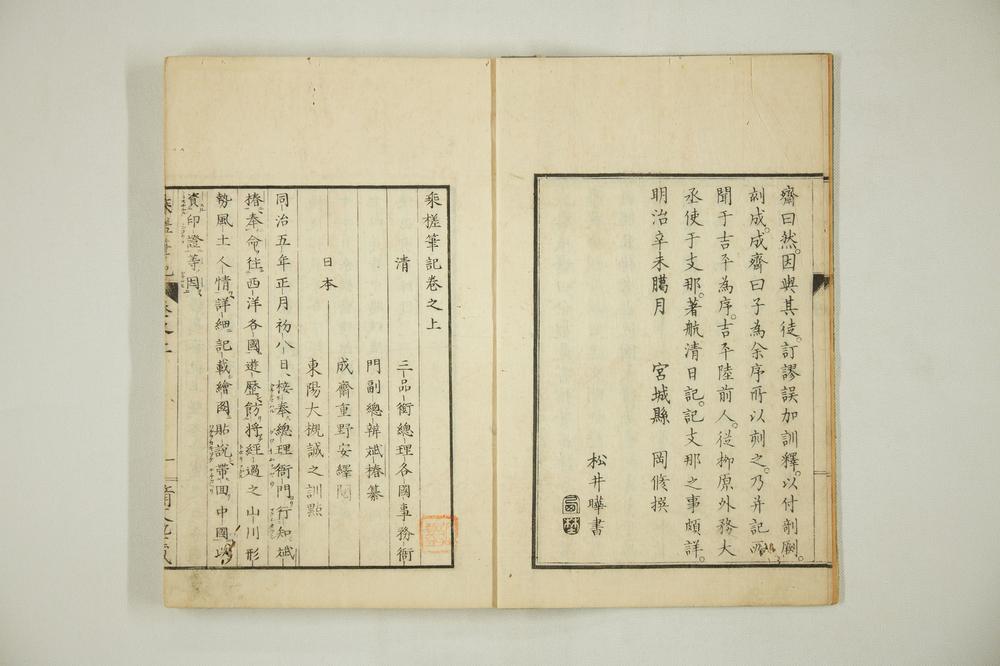 齋曰然。因與其徒。訂謬誤加訓釋。以付剞劂。
刻成。成齋曰子為余序所以刻之。乃并記所
聞于吉平為序。吉平陸前人。從柳原外務大
丞使于支那。著航清日記。記支那之事頗詳。
明治辛未臈月 宮城縣 岡脩撰
松井曄書
乘槎筆記卷之上
清 三品銜總理各國事務衙
門副總辨斌椿纂
日本 成齋重野安繹閲
東陽大槻誠之訓點
同治五年正月初八日、接奉總理衙門行知斌
椿奉命往西洋各國遊歷飭將經過之山川形
勢風土人情詳細記載繪圖貼說、帶回中國以
資印證等因